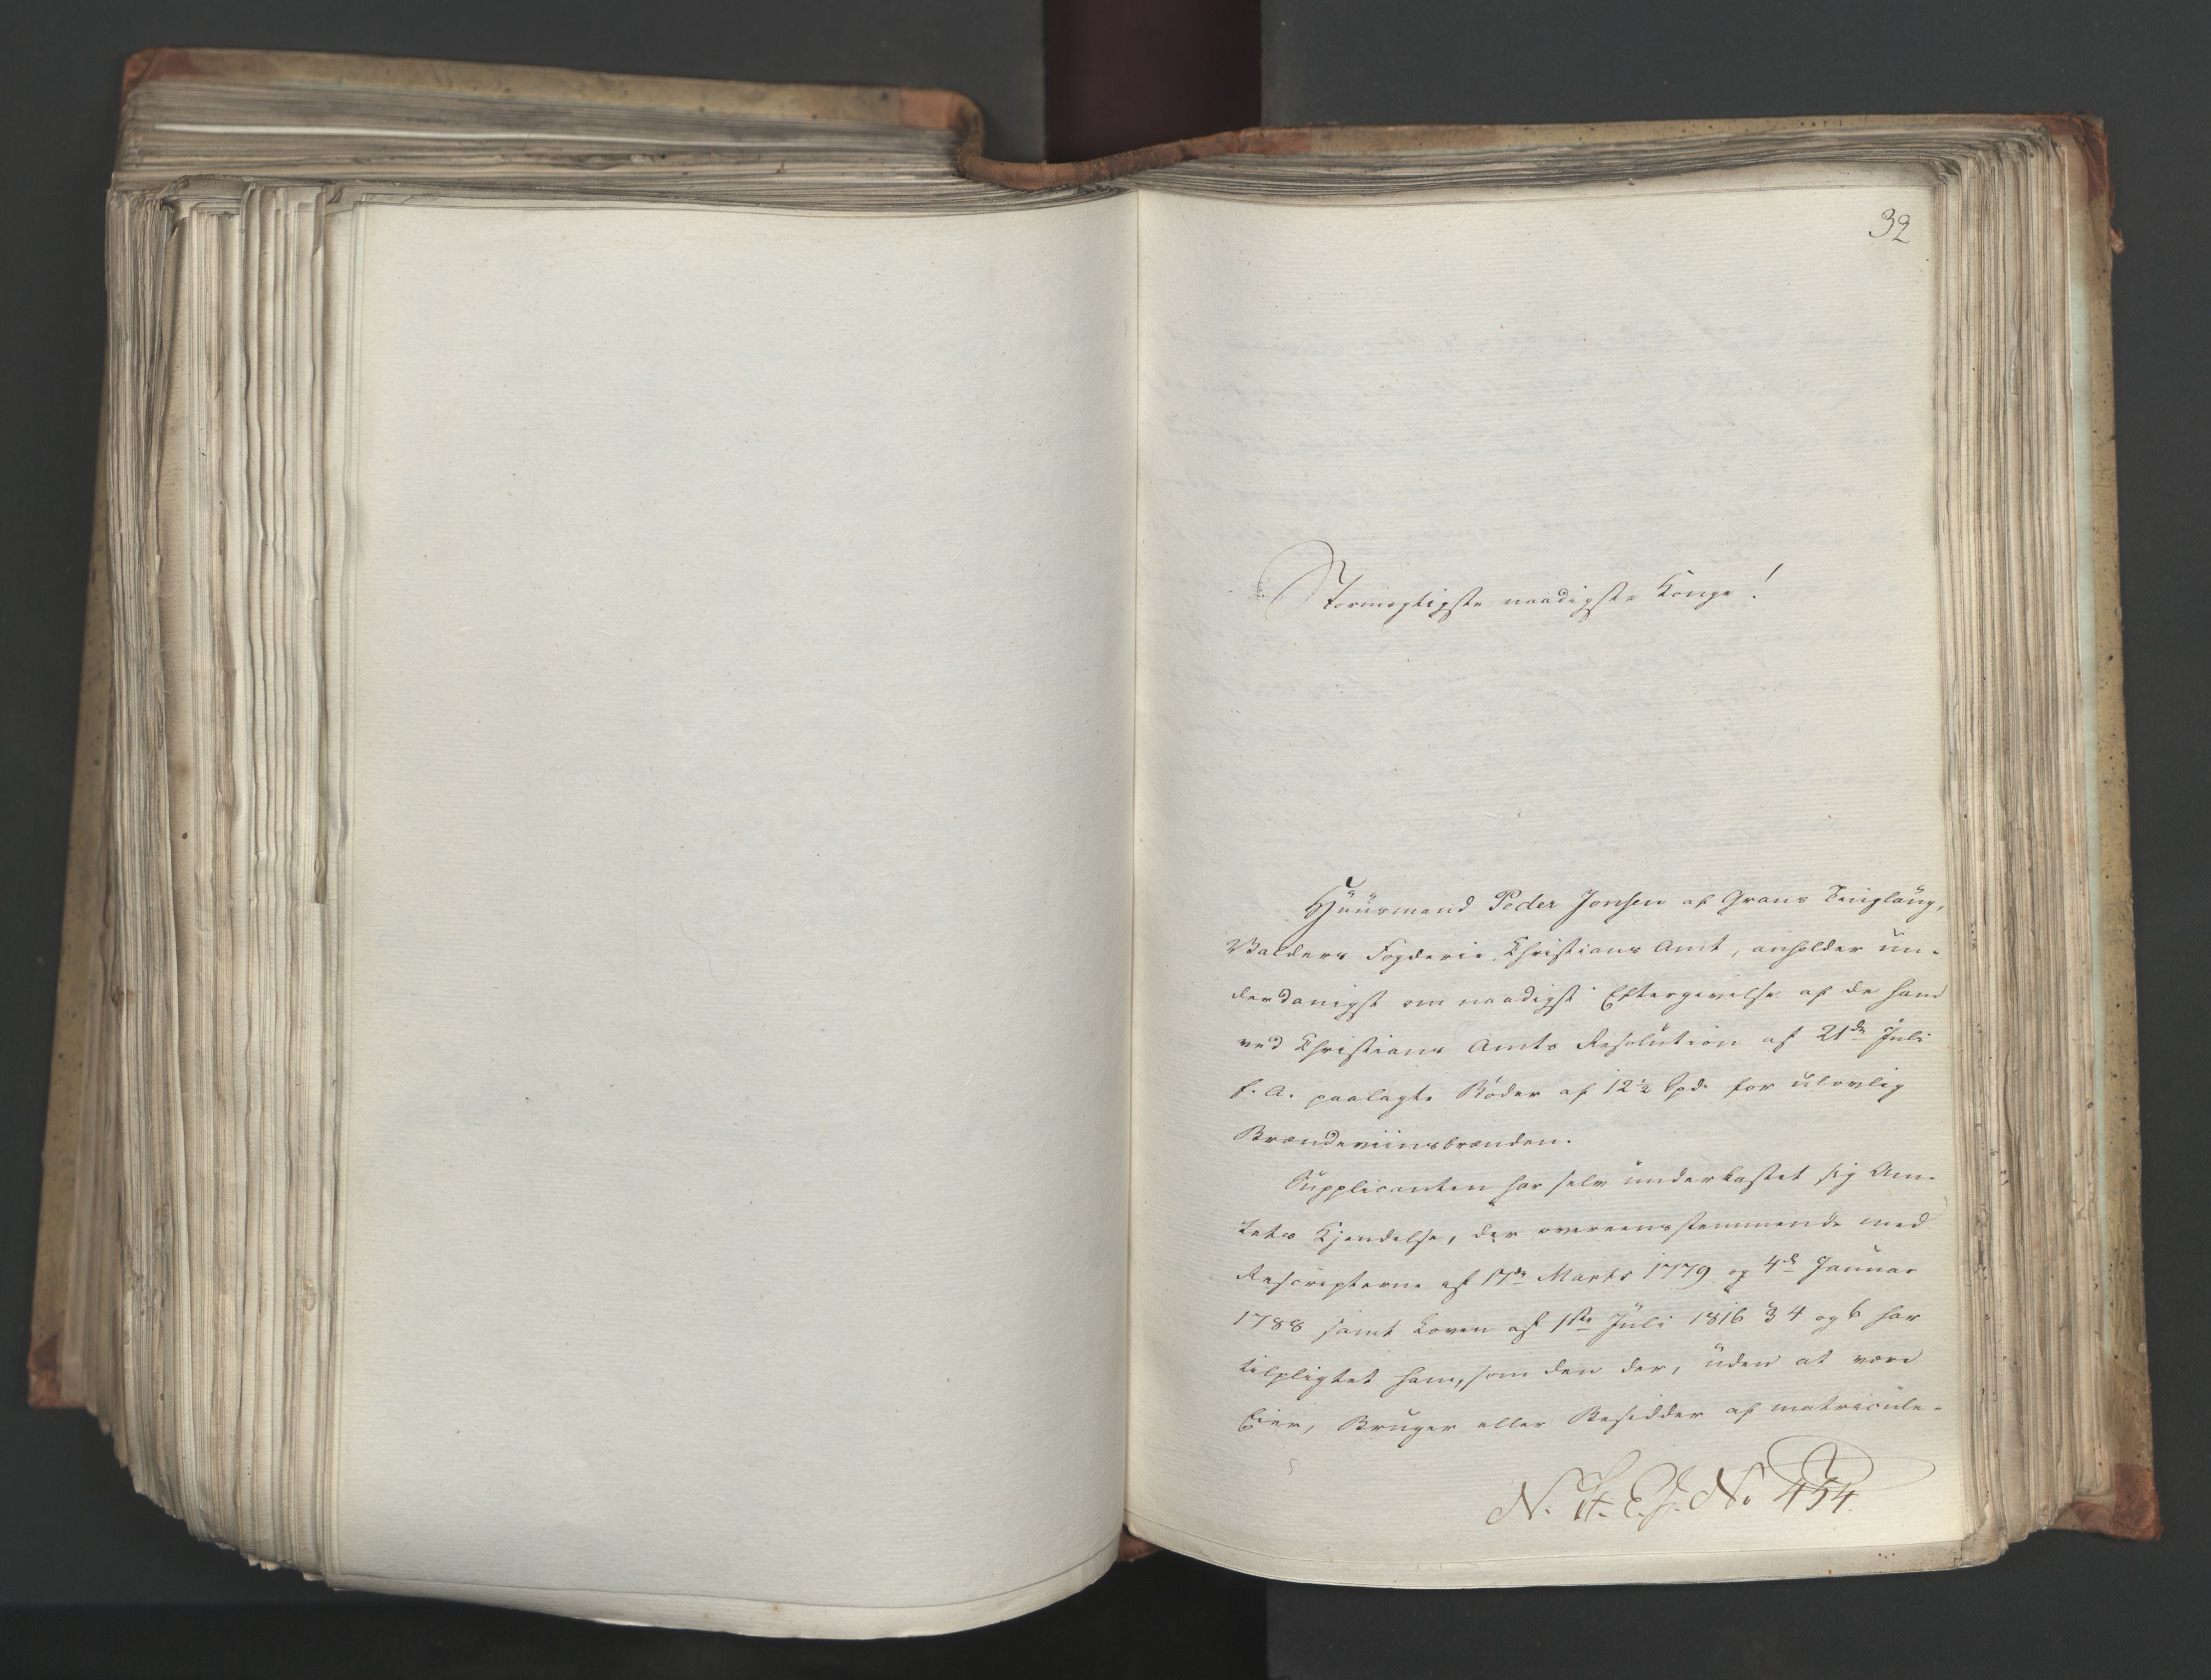 32
Stormægtigste naadigste Konge!
Huusmand Peder Jonsen af Grans Tinglaug,
Valders Fogderie, Christians Amt, anholder un-
derdanigst om naadigst Eftergivelse af de ham
ved Christians Amts Resolution af 21de Juli
f. A. paalagte Bøder af 12½ Spd. for ulovlig
Brændeviinsbrænden.
Supplicanten har selv underkastet sig Am-
tets Kjendelse, der overeensstemmende med
Rescripterne af 17de Marts 1779 og 4de Januar
1788 samt Loven af 1ste Juli 1816 § 4 og 6 har
tilpligtet ham, som den der, uden at være
Eier, Bruger eller Besidder af matricule-
No 454.